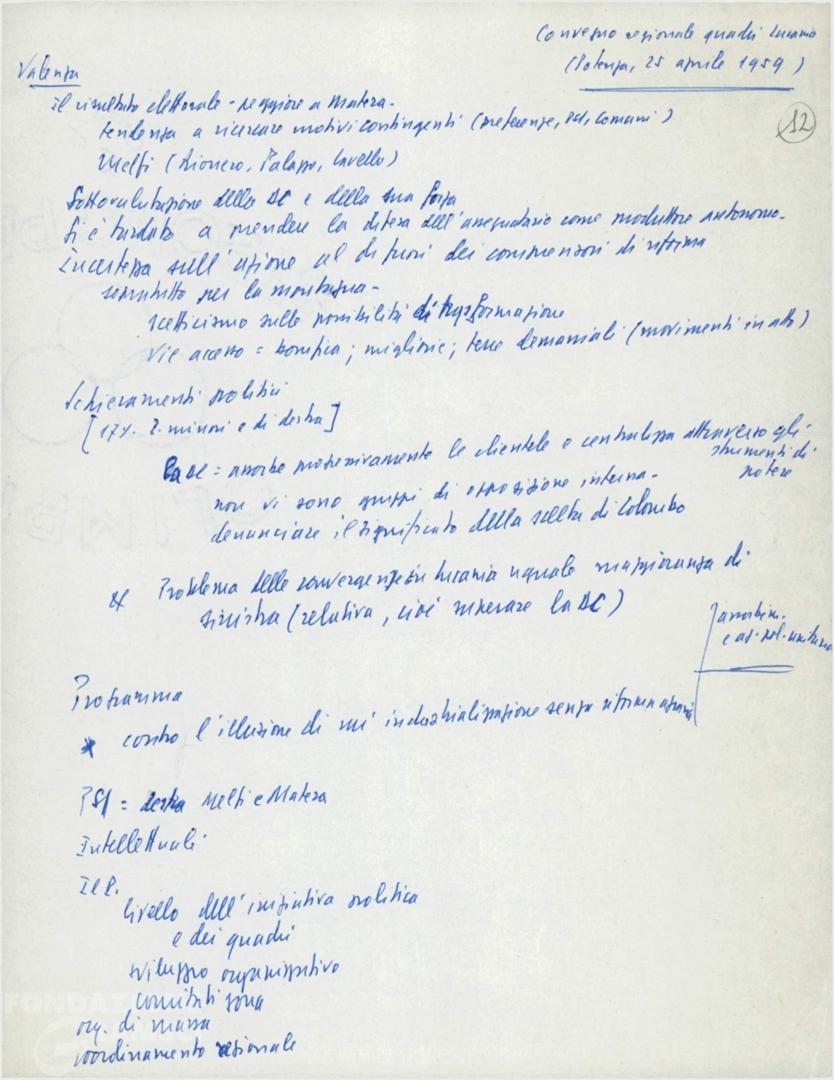 Convegno regionale quadri Lucania
(Potenza, 25 aprile 1959)
12
Valenza
Il risultato elettorale - peggiore a Matera -
tendenza a ricercare motivi contingenti (preferenze, PSI, comuni)
Melfi (Rionero, Palazzo, Lavello)
Sottovalutazione della DC e della sua forza
Si è tardato a prendere la difesa dell'assegnatario come produttore autonomo -
Incertezza sull'azione al di fuori dei comprensori di riforma
soprattutto per la montagna -
scetticismo sulle possibilità di trasformazione
Vie accesso = bonifica; migliorie; terre demaniali (movimenti in atto)
Schieramenti politici
[17%. P. minori e di destra]
La DC = assorbe progressivamente le clientele e centralizza attraverso gli
strumenti di
potere
non vi sono gruppi di opposizione interna -
denunciare il significato della scelta di Colombo
Problema delle convergenze in Lucania uguale maggioranza di
sinistra (relativa, cioè superare la DC)
Programma
contro l'illusione di un'industrializzazione senza riforma agraria
PSI = destra Melfi e Matera
Intellettuali
Il P.
livello dell'iniziativa politica
e dei quadri
sviluppo organizzativo
comitati zona
org. di massa
coordinamento regionale
FONDAZIONE